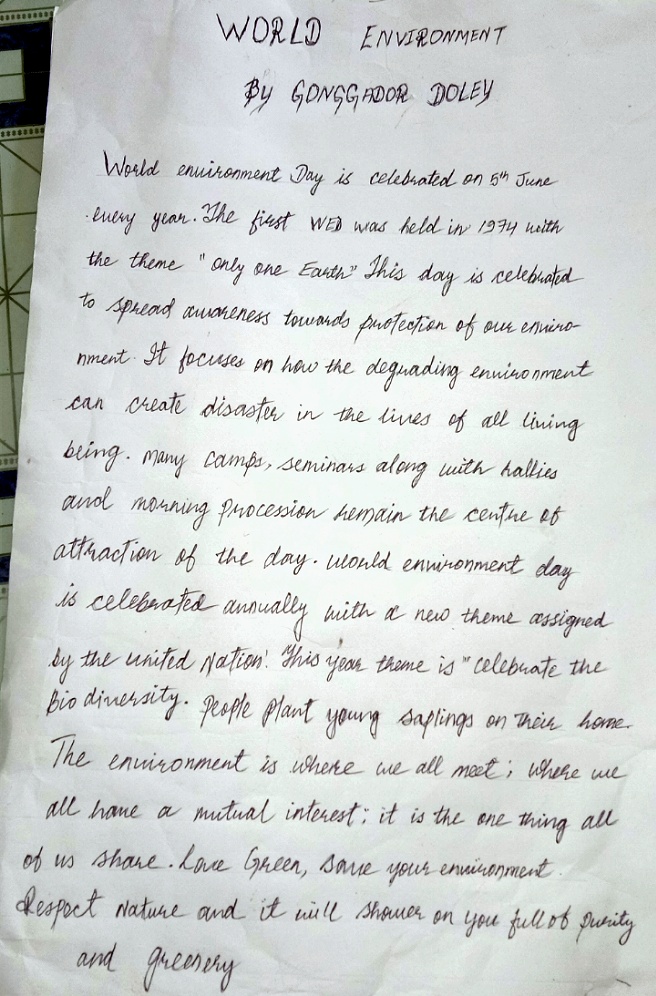 WORLD ENVIRONMENT
By GONGGADOR DOLEY
World environment Day is celebrated on 5th June
every year. The first WED was held in 1974 with
the theme "only one Earth" This day is celebrated
to spread awareness towards protection of our enviro-
nment. It focuses on how the degrading environment
can create disaster in the lives of all living
being. Many camps, seminars along with rallies
and morning procession remain the centre of
attraction of the day. World environment day
is celebrated annually with a new theme assigned
by the united Nation'. This year theme is "celebrate the
Bio diversity. People plant young saplings on their home.
The environment is where we all meet; where we
all have a mutual interest; it is the one thing all
of us share. Love Green, save your environment.
Respect Nature and it will shower on you full of purity
and greenery